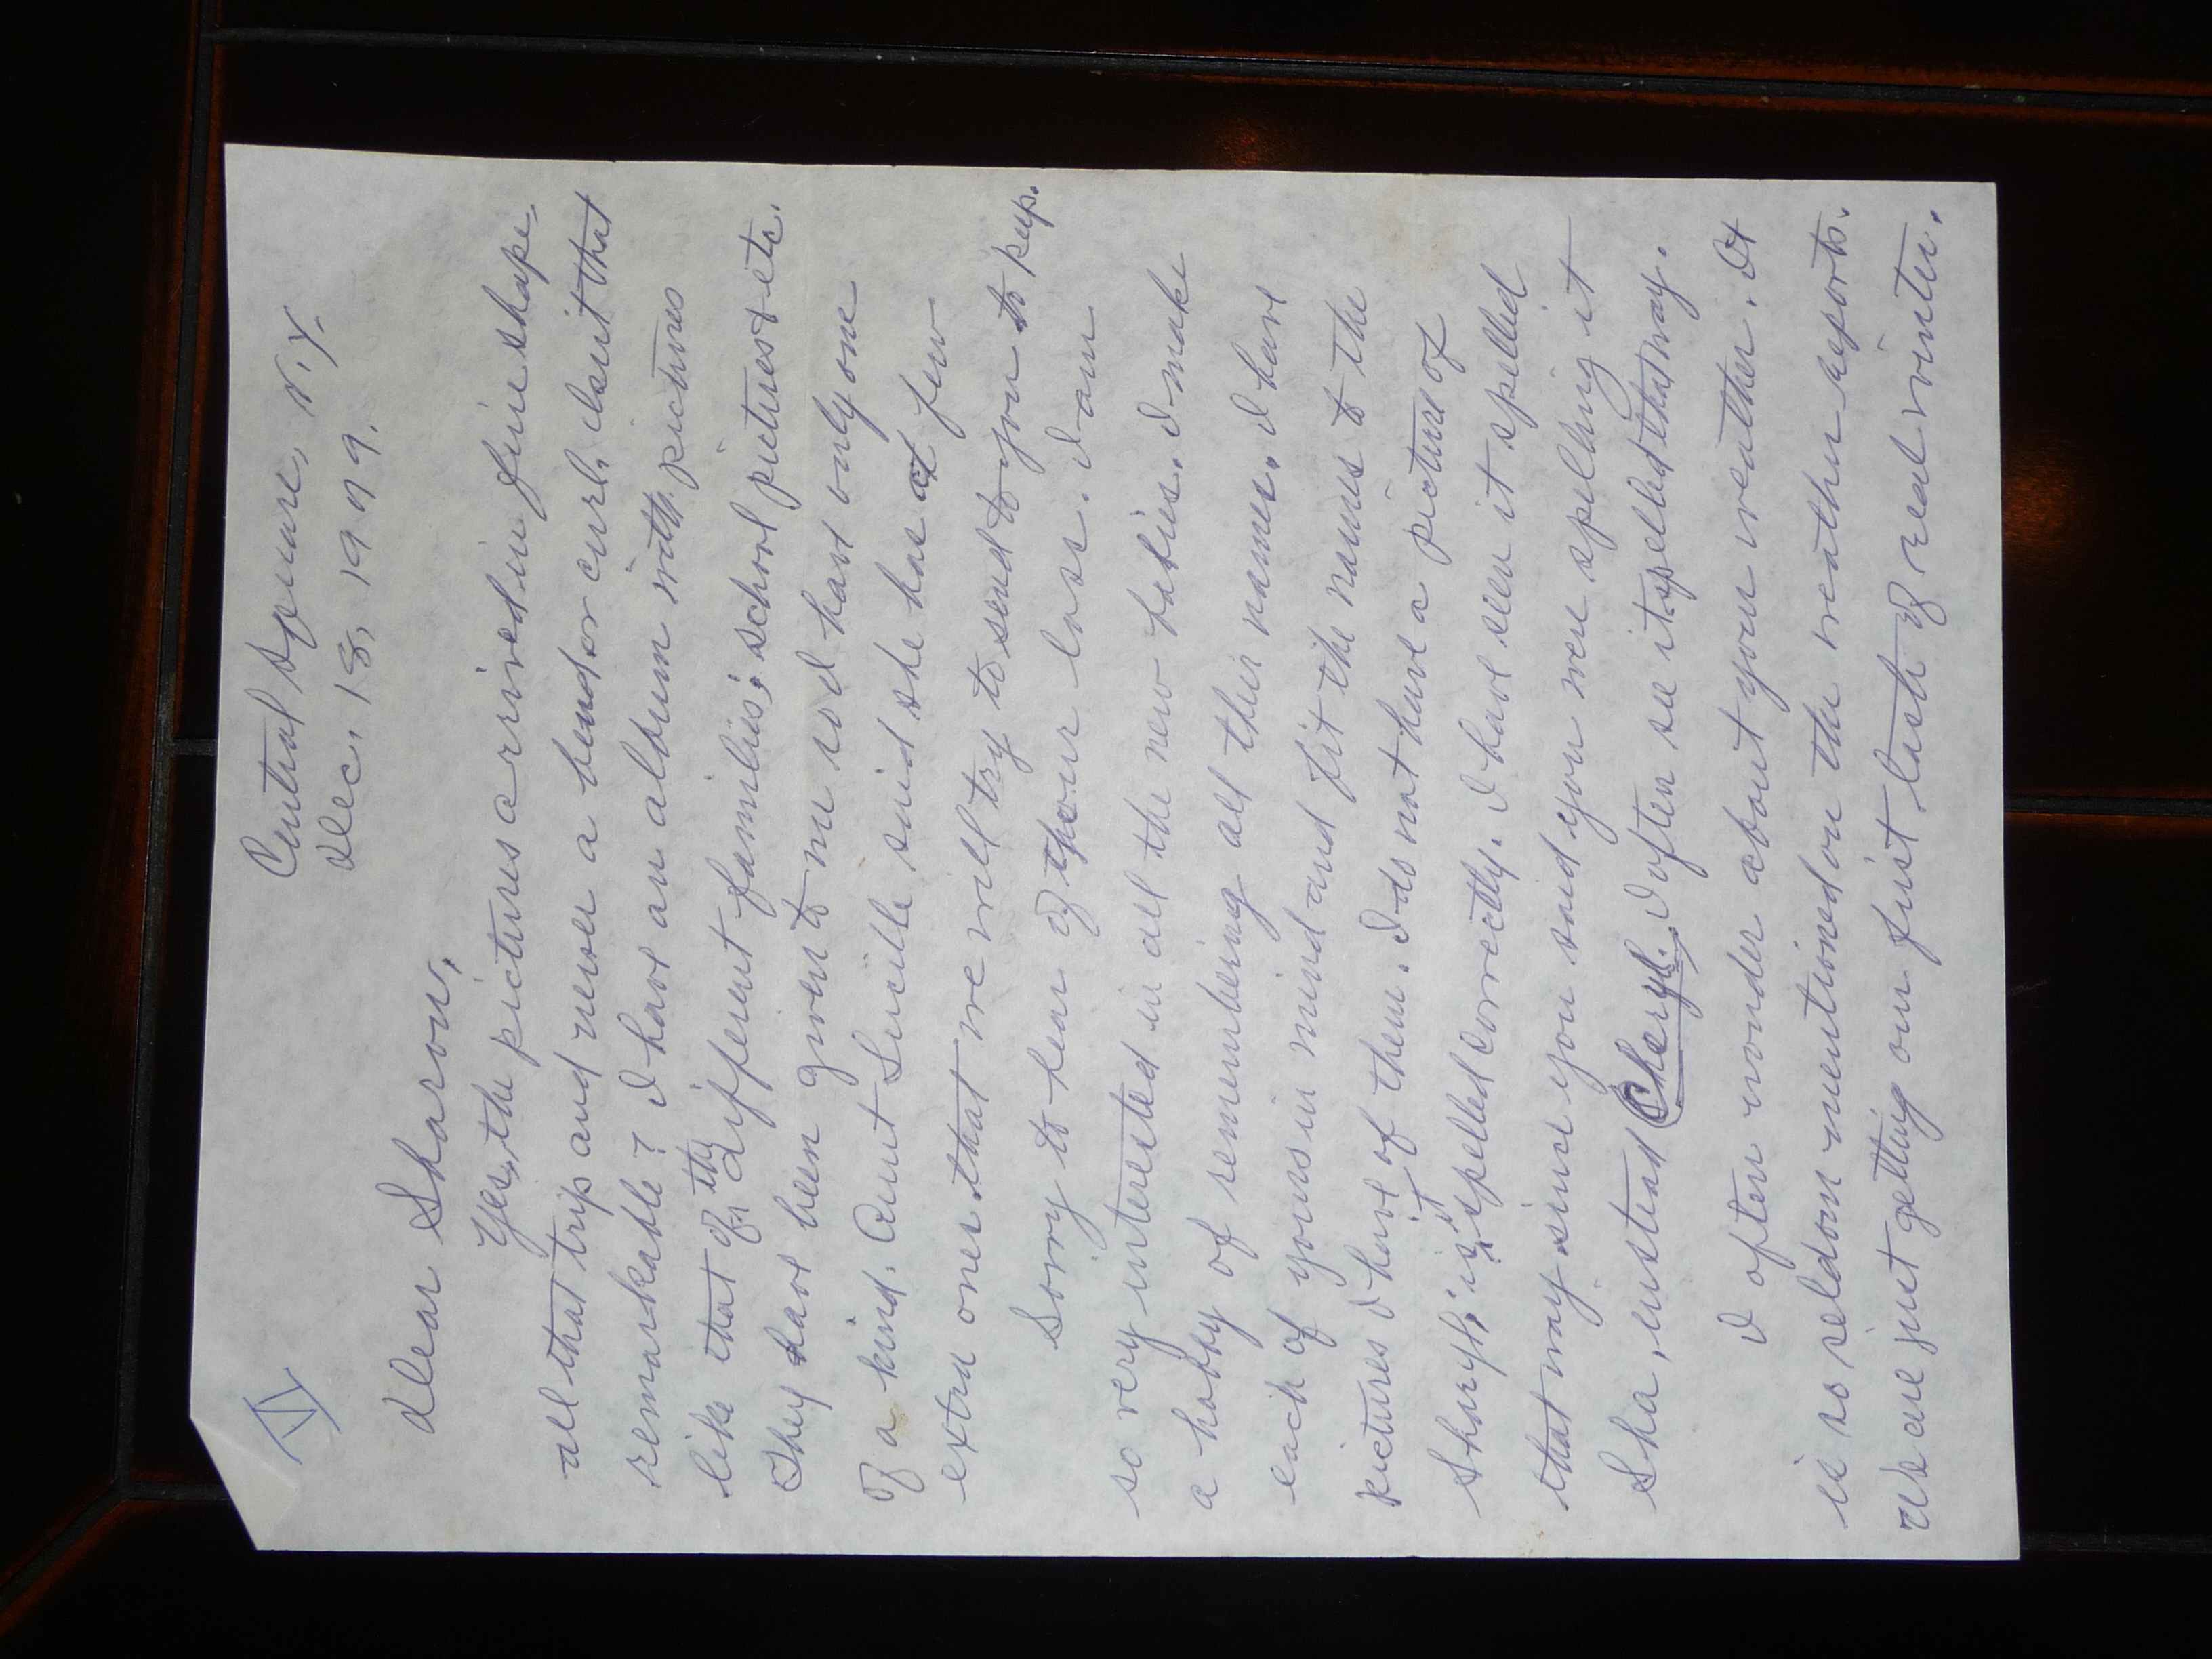 IV
Central Square, N.Y.
Dec. 18, 1979.
Dear Sharon,
Yes, the pictures arrived in fine shape.
all that trip and never a bend or curl. Isn't that
remarkable? I have an album with pictures
like that of the different families; school pictures & etc.
They have been given to me so I have only one
of a kind. Aunt Lucille said she has a few
extra ones that we will try to send to you to keep.
Sorry to hear of your loss. I am
so very interested in all the new babies. I make
a hobby of remembering all their names. I have
each of yours in mind and fit the names to the
pictures I have of them. I do not have a picture of
Sharyl; is it spelled correctly. I have seen it spelled
that way since you said you were spelling it
Sha, instead Cheryl. I often see it spelled that way.
I often wonder about your weather. It
is so seldom mentioned on the weather reports.
We are just getting our first lash of real winter.